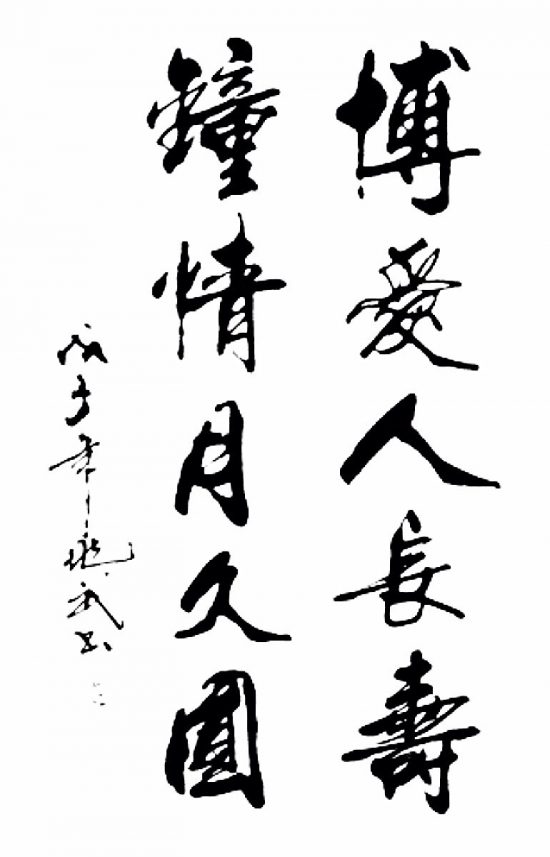 博愛人長壽
鐘情月久圓
戊子年
武書